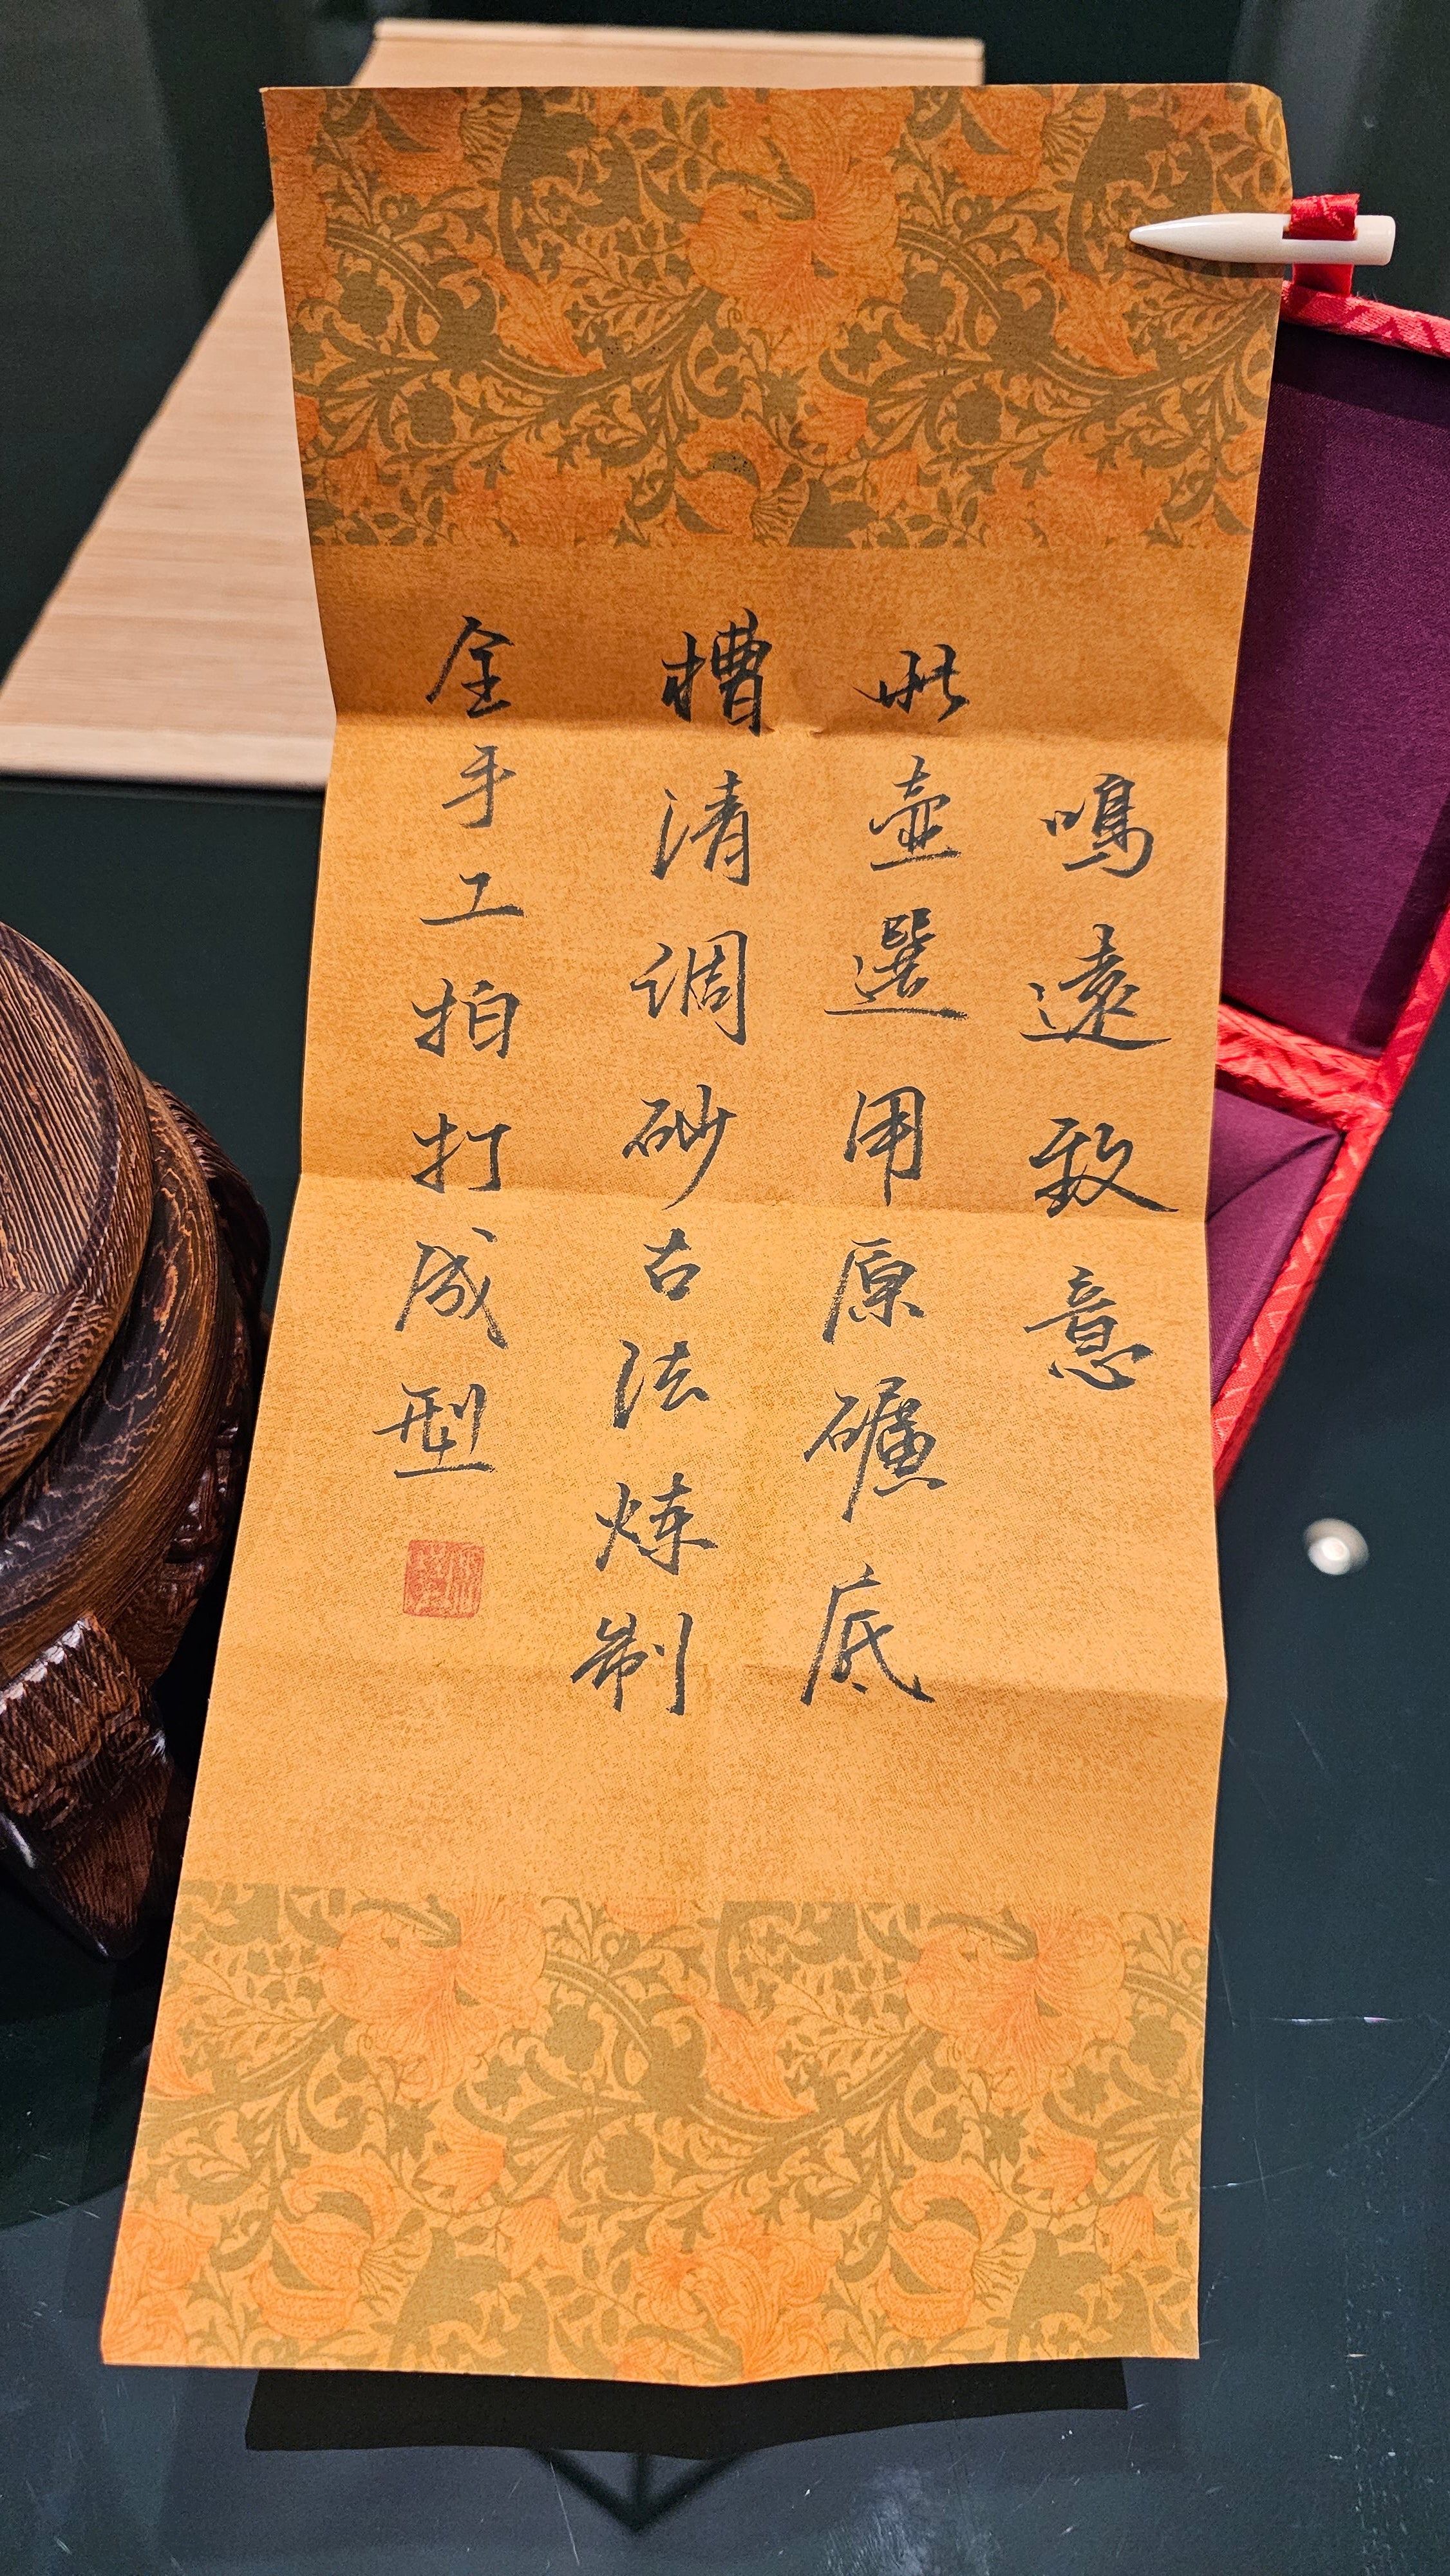 鳴遠致意
此壺選用原礦底
槽清调砂古法炼制
全手工拍打成型